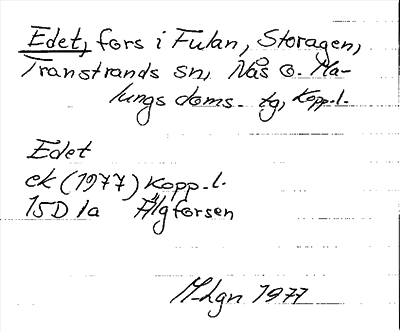 Edet, fors i Fulan, Storågen,
Transtrands sn, Nås o. Ma-
lungs doms. tg, Kopp.l.
Edet
ek (1977) Kopp.l.
15D 1a Älgforsen
M-Lgn 1977